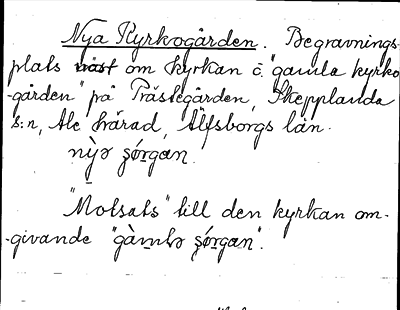 Nya Kyrkogården. Begravnings-
plats väst om kyrkan o. "gamla kyrko-
-gården" på Prästegården, Skepplanda
s:n, Ale härad, Älfsborgs län.
nỳə ʂǫ́rgan.
"Motsats" till den kyrkan om-
-givande "gàmlə ʂǫ́rgan".